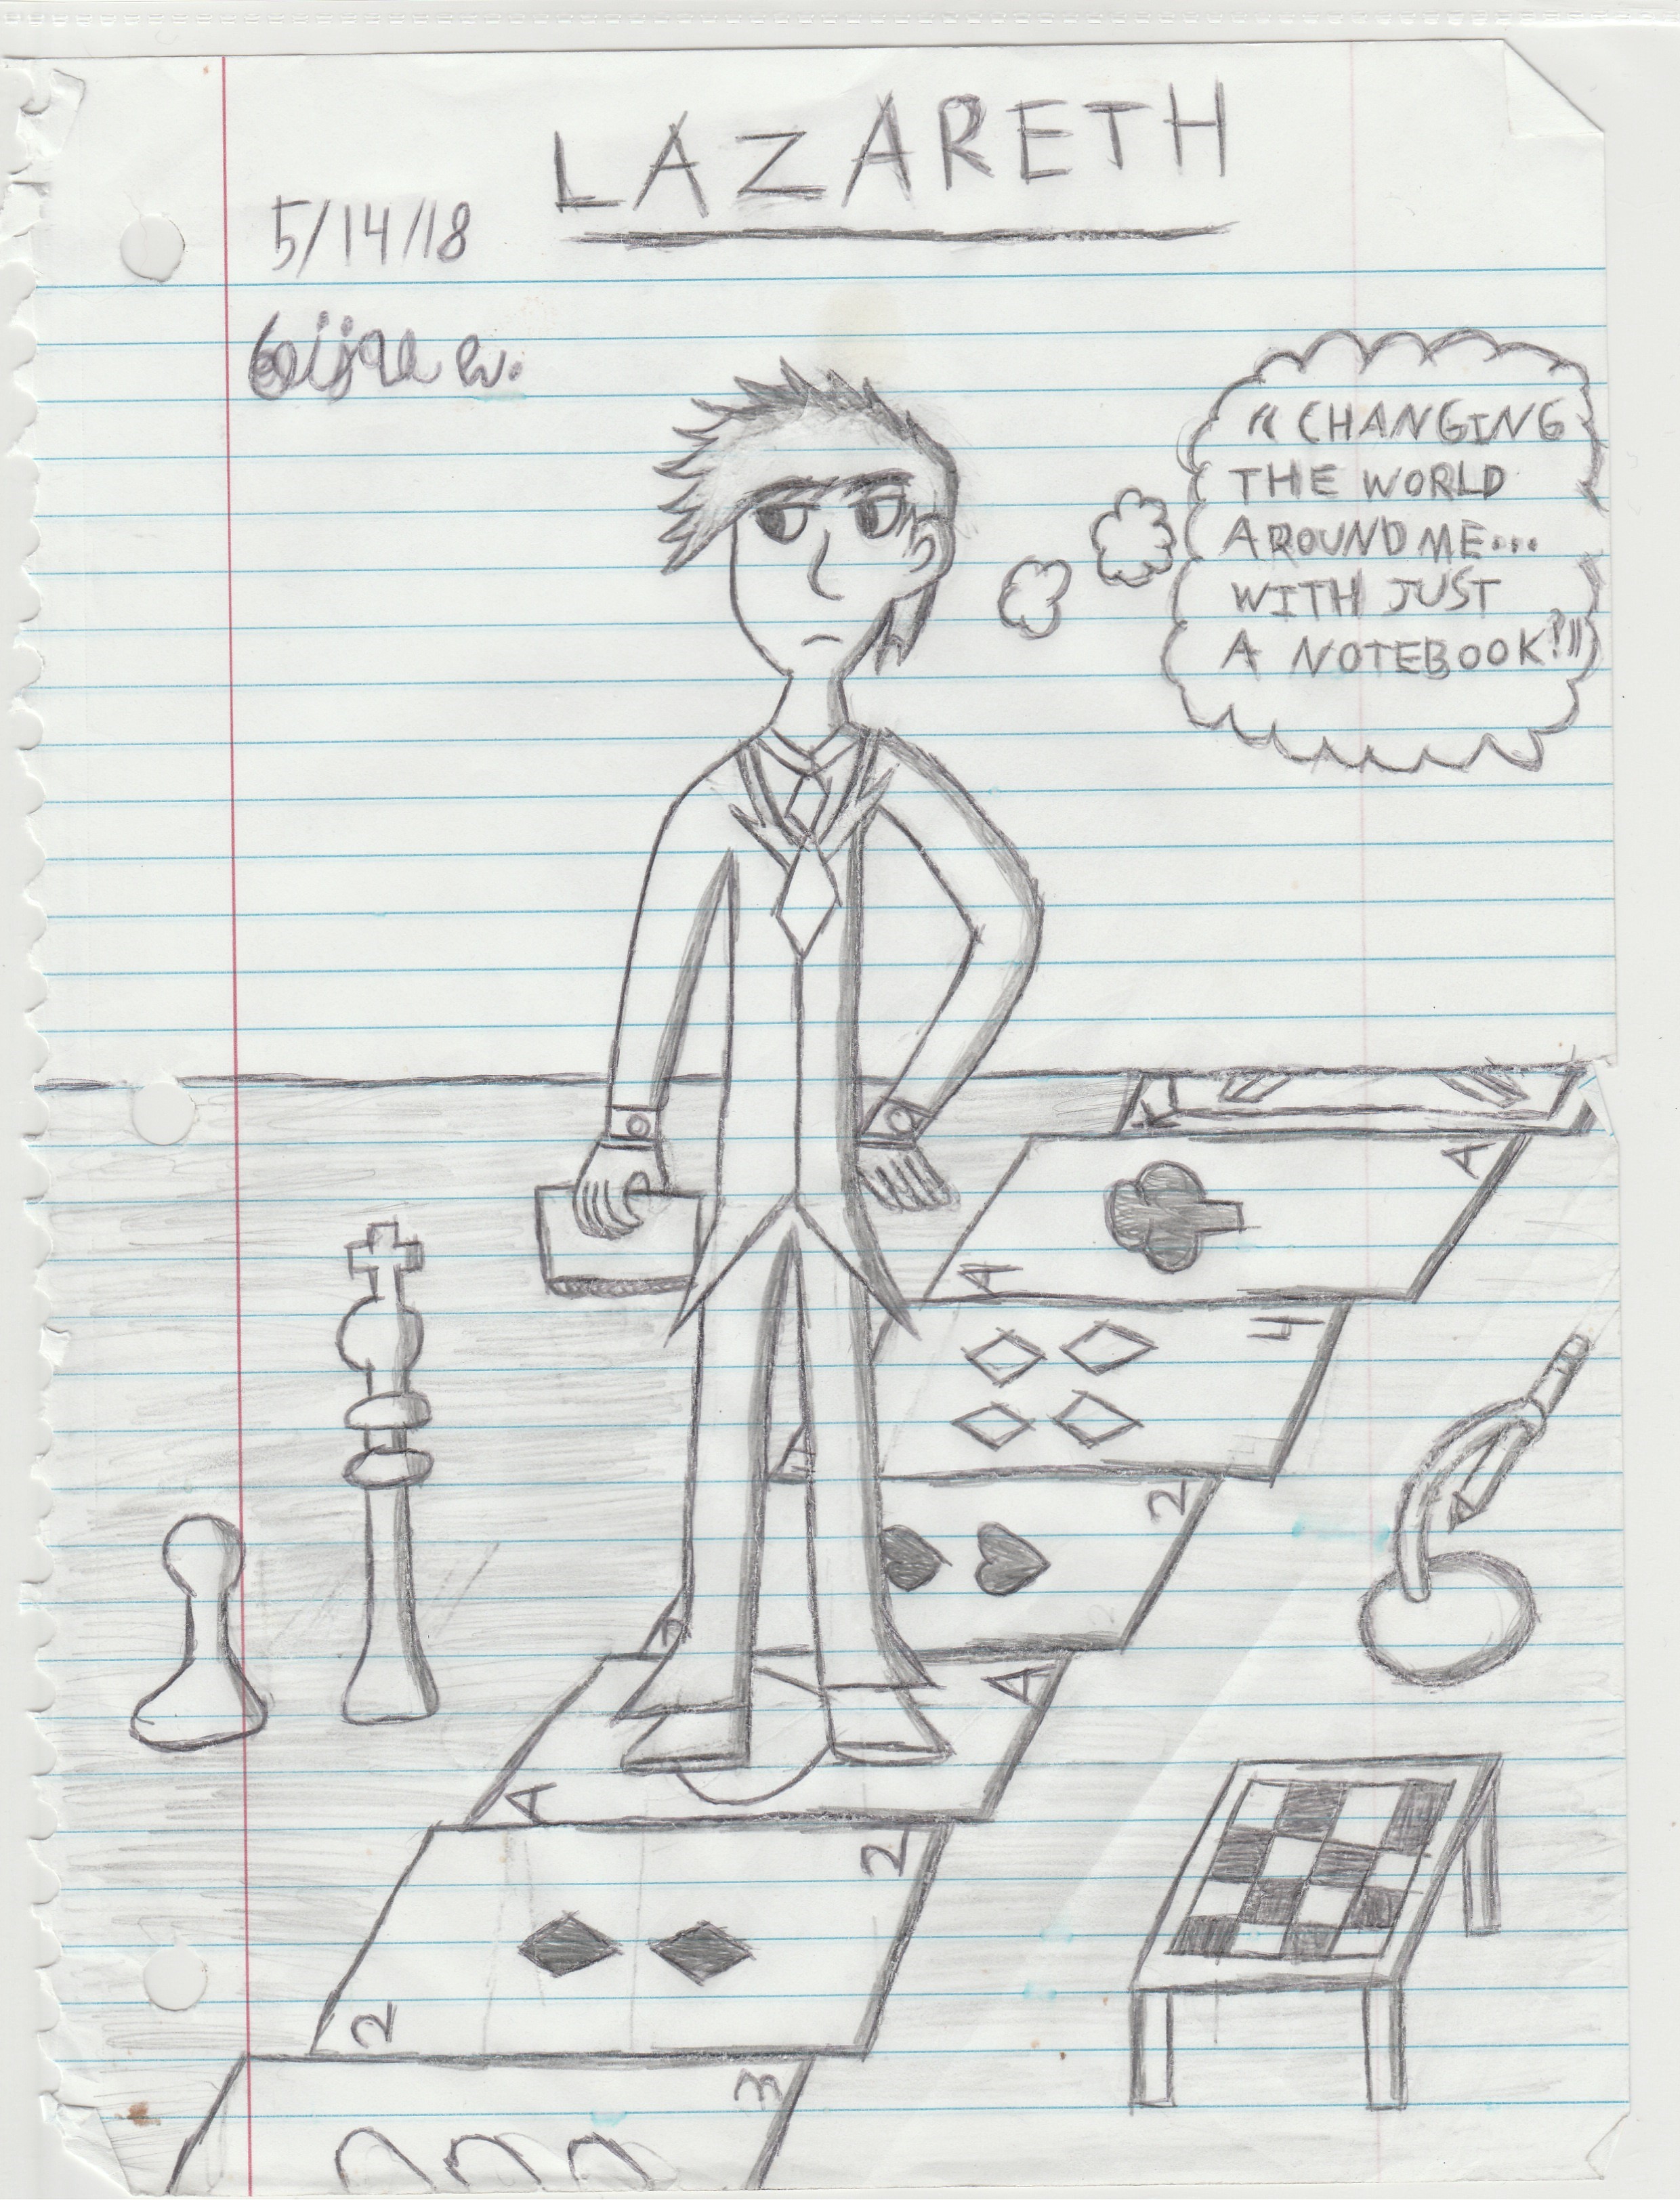 LAZARETH
5/14/18
"CHANGING
THE WORLD
AROUND ME...
WITH JUST
A NOTEBOOK?!"
K
A
A
4
2
2
A
A
2
2
3